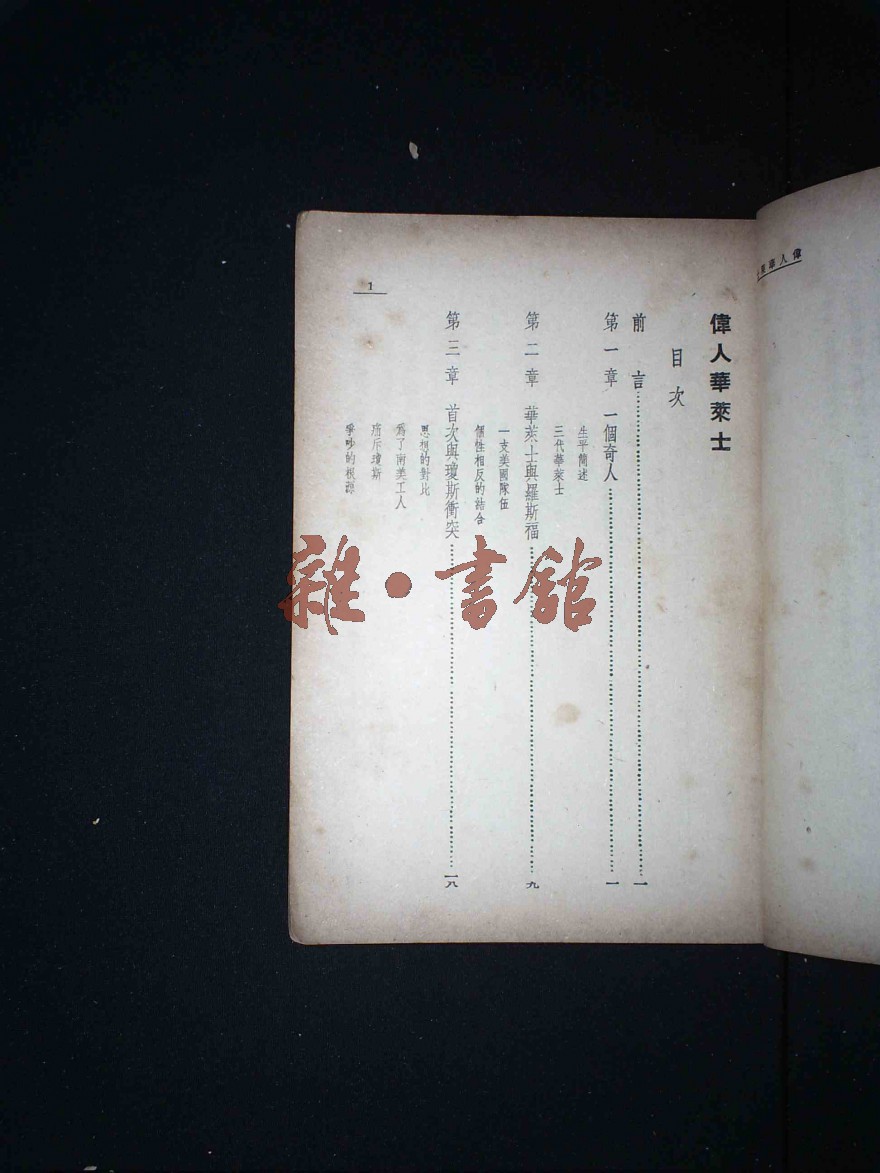 偉人華萊士
目次
前言……一
第一章 一個奇人……一
生平簡述
三代華萊士
第二章 華萊士與羅斯福……九
一支美國隊伍
個性相反的結合
第三章 首次與瓊斯衝突……一八
思想的對比
為了南美工人
痛斥瓊斯
爭吵的根源
1
偉人華
雜·書館